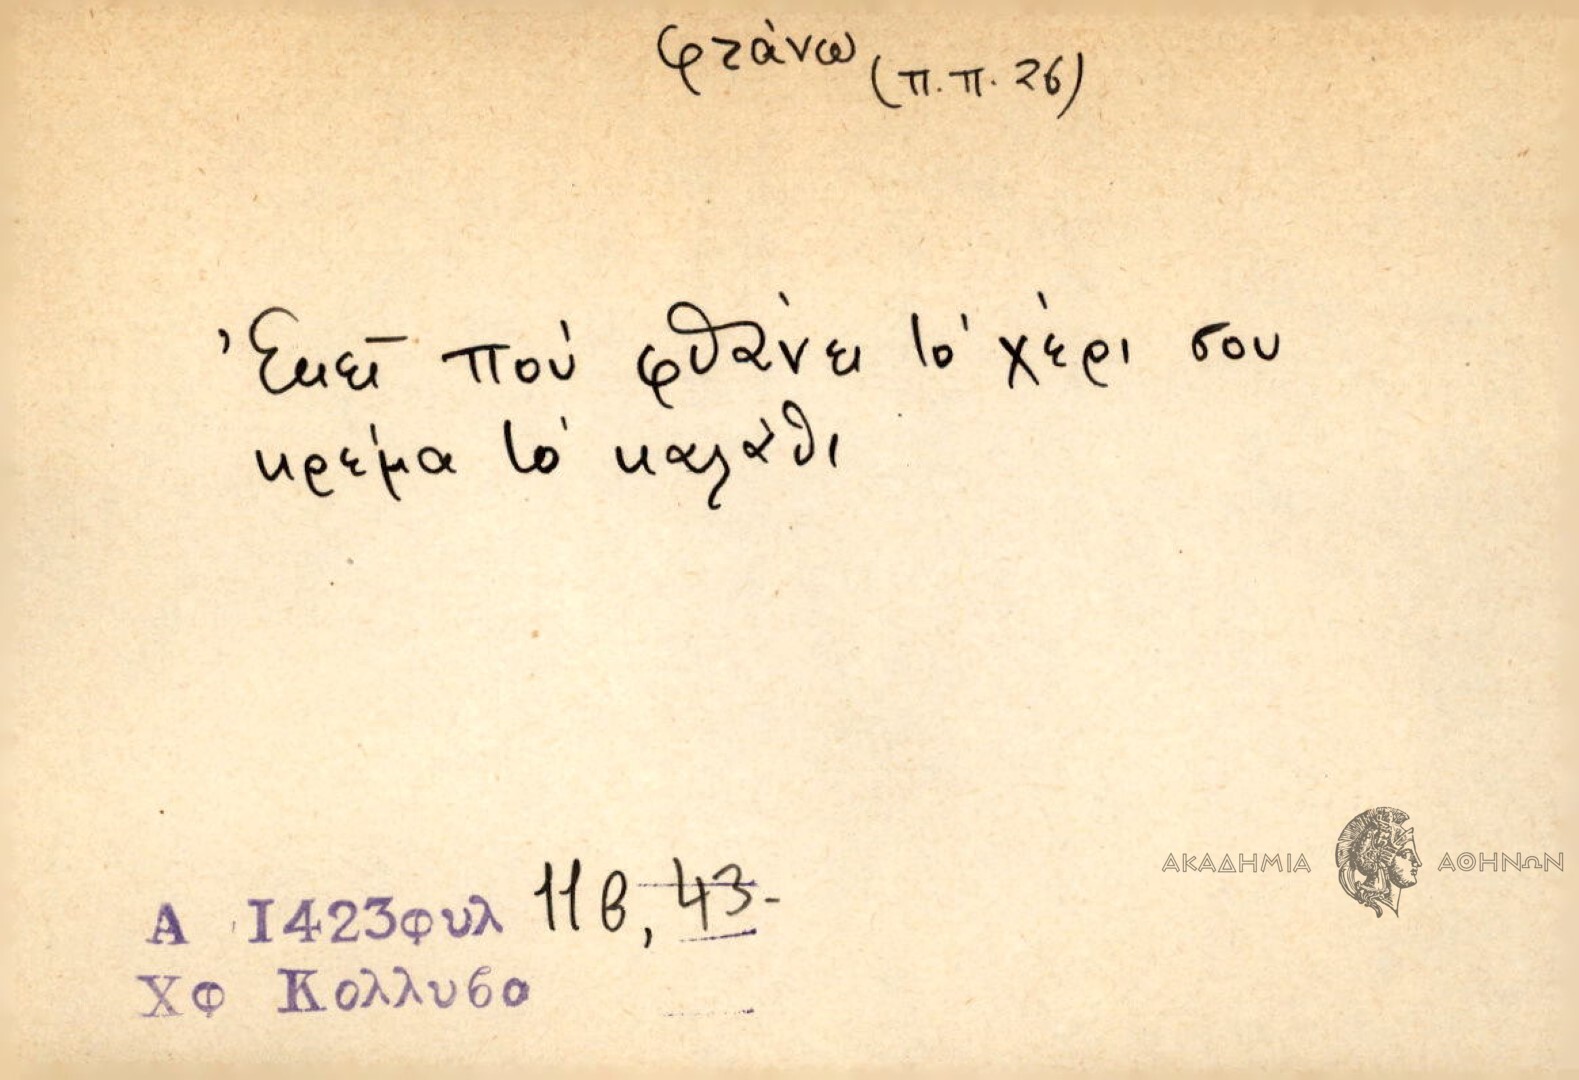 φτάνω (π.π. 26)
Ἐκεῖ ποὺ φθάνει τὸ χέρι σου
κρέμα τὸ καλάθι
Α 1423φυλ 11β, 43-
Χφ Κολλυβα
ΑΚΑΔΗΜΙΑ ΑΘΗΝΩΝ